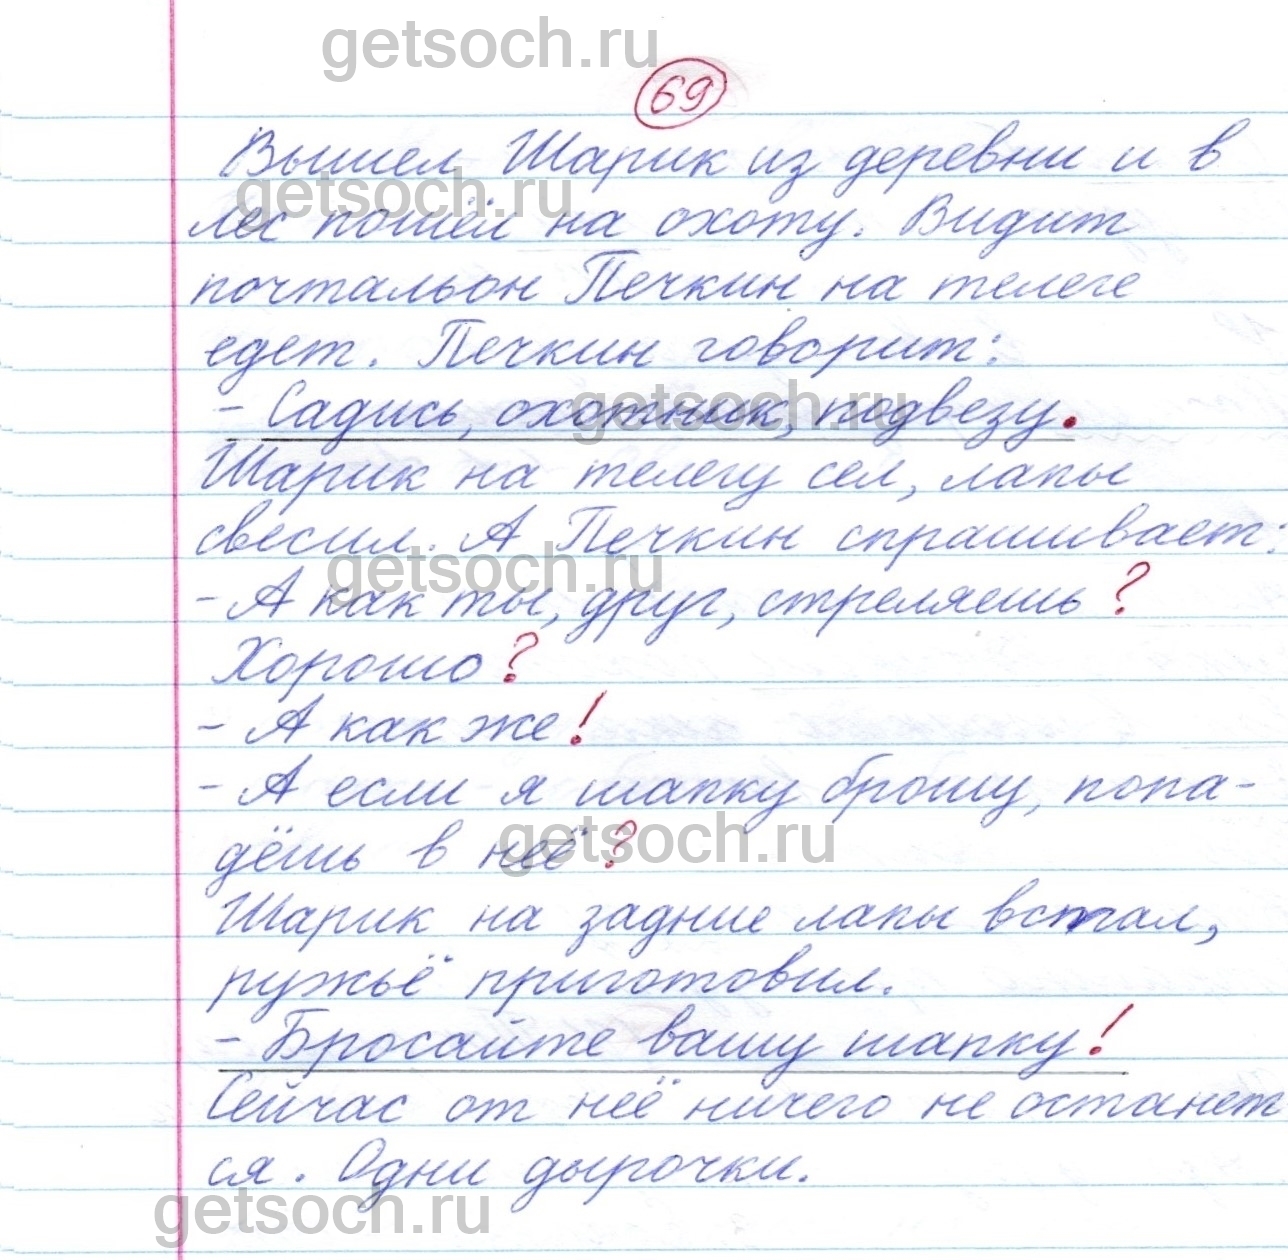 getsoch.ru
69
Вышел Шарик из деревни и в
getsoch.ru
лес пошёл на охоту. Видит
почтальон Печкин на телеге
едет. Печкин говорит:
getsoch.ru
- Садись, охотник, подвезу.
Шарик на телегу сел, лапы
свесил. А Печкин спрашивает:
getsoch.ru
- А как ты, друг, стреляешь?
Хорошо?
- А как же!
- А если я шапку брошу, попа-
getsoch.ru
дёшь в неё?
Шарик на задние лапы встал,
ружьё приготовил.
- Бросайте вашу шапку!
Сейчас от неё ничего не останет
ся. Одни дырочки.
getsoch.ru